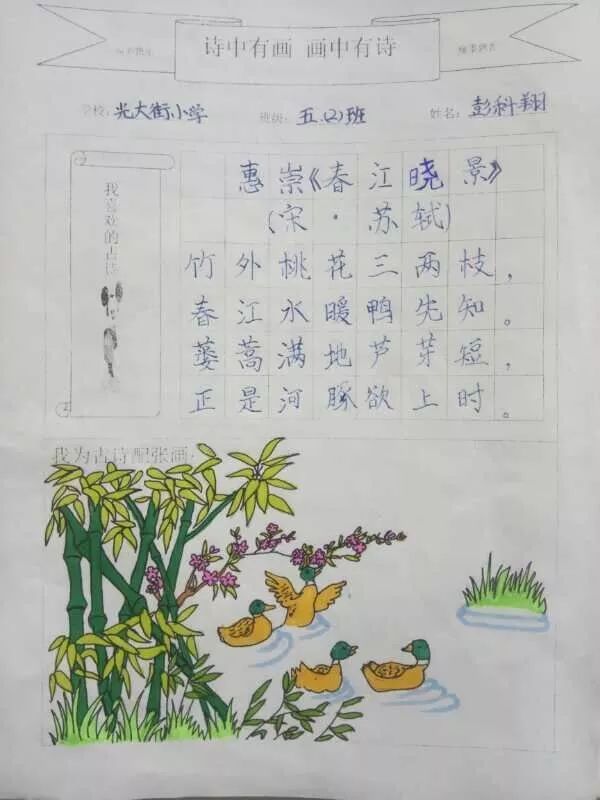 诗中有画 画中有诗
学校: 光大街小学 班级: 五.(2)班 姓名: 彭科翔
我喜欢的古诗
惠崇《春江晓景》
(宋·苏轼)
竹外桃花三两枝，
春江水暖鸭先知。
蒌蒿满地芦芽短，
正是河豚欲上时。
我为古诗配张画.